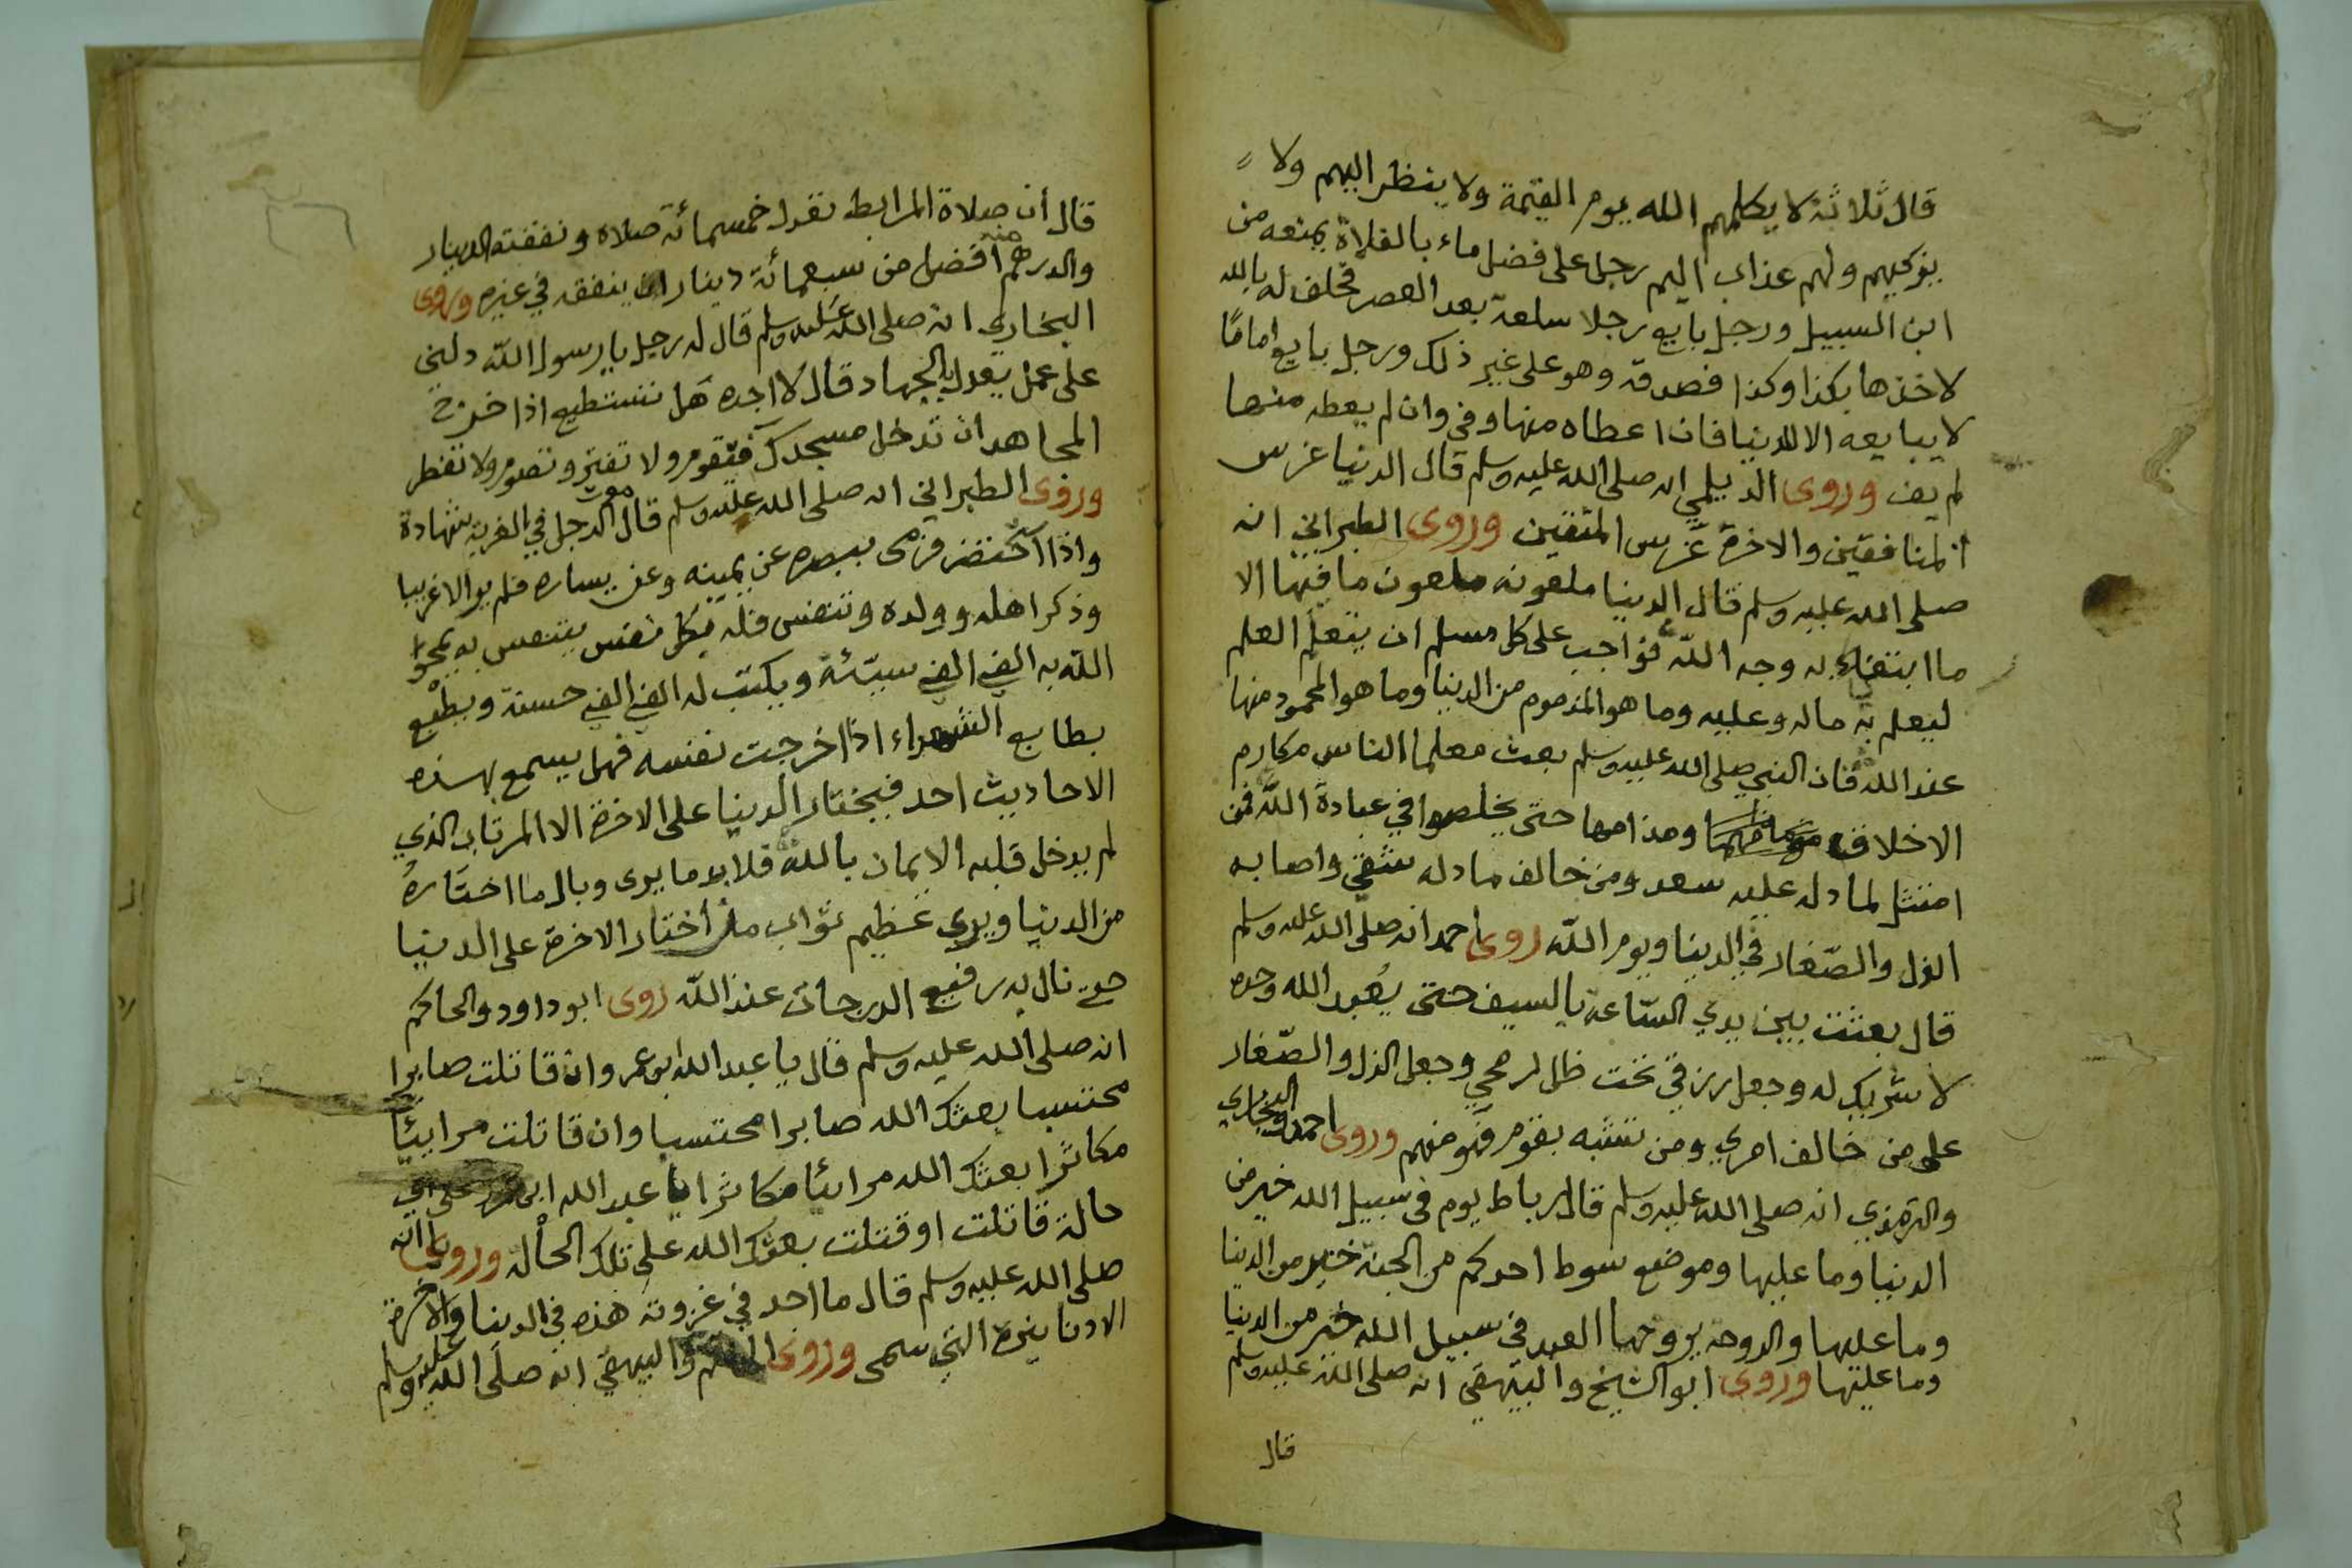 قال ثلاثة لا يكلمهم الله يوم القيمة ولا ينظر اليهم ولا
يزكيهم ولهم عذاب اليم رجل على فضل ماء بالفلاة يمنعه من
ابن السبيل ورجل بايع رجلا سلعة بعد العصر فحلف له بالله
لاخذها بكذا وكذا فصدقه وهو على غير ذلك ورجل بايع اماما
لا يبايعه الا للدنيا فان اعطاه منها وفى وان لم يعطه منها
لم يف وروى الديلمي انه صلى الله عليه وسلم قال الدنيا غرس
المنافقين والاخرة غرس المتقين وروى الطبراني انه
صلى الله عليه وسلم قال الدنيا ملعونة ملعون ما فيها الا
ما ابتغي به وجه الله فواجب على كل مسلم ان يتعلم العلم
ليعلم به ماله وعليه وما هو المذموم من الدنيا وما هو المحمود منها
عند الله فان النبي صلى الله عليه وسلم بعث معلما الناس مكارم
الاخلاق ومذامها حتى يخلصوا في عبادة الله فمن
امتثل لما دله عليه سعد ومن خالف ما دله شقي واصابه
الذل والصغار في الدنيا ويوم الله روى احمد انه صلى الله عليه وسلم
قال بعثت بين يدي الساعة بالسيف حتى يُعبد الله وحده
لا شريك له وجعل رزقي تحت ظل رمحي وجعل الذل والصغار
على من خالف امري ومن تشبه بقوم فهو منهم وروى احمد والبخاري
والترمذي انه صلى الله عليه وسلم قال رباط يوم في سبيل الله خير من
الدنيا وما عليها وموضع سوط احدكم من الجنة خير من الدنيا
وما عليها والروحة يروحها العبد في سبيل الله خير من الدنيا
وما عليها وروى ابو الشيخ والبيهقي انه صلى الله عليه وسلم
قال
قال أن صلاة المرابط تعدل خمسمائة صلاة ونفقته الدينار
والدرهم منه افضل من سبعمائة دينار ينفقه في غيره وروى
البخاري انه صلى الله عليه وسلم قال له رجل يا رسول الله دلني
على عمل يعدل بالجهاد قال لا اجده هل تستطيع اذا خرج
المجاهد ان تدخل مسجدك فتقوم ولا تفتر وتصوم ولا تفطر
وروى الطبراني انه صلى الله عليه وسلم قال موت الرجل في الغربة شهادة
واذا احتضر فرمى ببصره عن يمينه وعن يساره فلم ير الا غريبا
وذكر اهله وولده وتنفس فله بكل نفس يتنفس به يمحو
الله به الفي الف سيئة ويكتب له الفي الف حسنة ويطبع
بطابع الشهداء اذا خرجت نفسه فهل يسمع بهذه
الاحاديث احد فيختار الدنيا على الاخرة الا المرتاب الذي
لم يدخل قلبه الايمان بالله فلا بد ما يرى وبال ما اختاره
من الدنيا ويرى عظيم ثواب من اختار الاخرة على الدنيا
حتى نال به رفيع الدرجات عند الله روى ابو داود والحاكم
انه صلى الله عليه وسلم قال يا عبد الله ابن عمرو ان قاتلت صابرا
محتسبا بعثك الله صابرا محتسبا وان قاتلت مرائيا
مكاثرا بعثك الله مرائيا مكاثرا يا عبد الله ابن عمر على اي
حالة قاتلت او قتلت بعثك الله على تلك الحالة وروى انه
صلى الله عليه وسلم قال ما اجد في غزوته هذه في الدنيا والاخرة
الا دنانيره التي سمى وروى والبيهقي انه صلى الله عليه وسلم